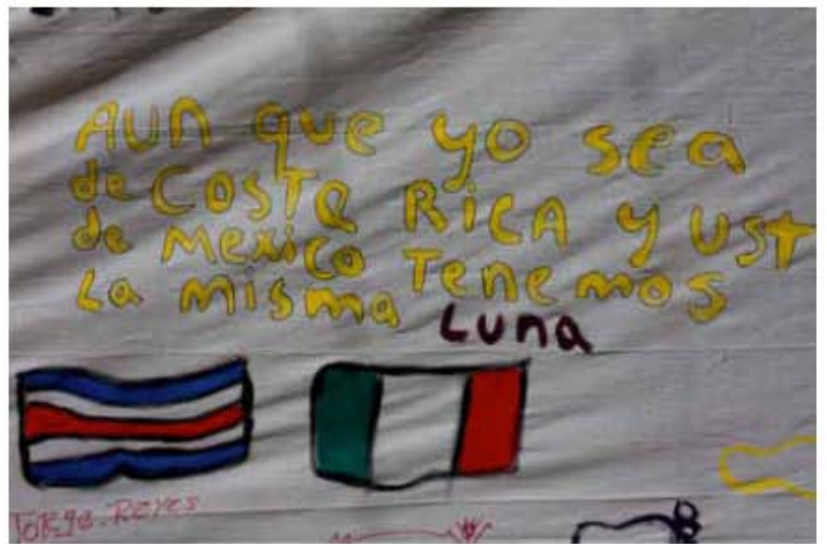 Aun que yo sea
de COSTa RiCA y UST
de mexico Tenemos
La misma
Luna
Jorge. Reyes